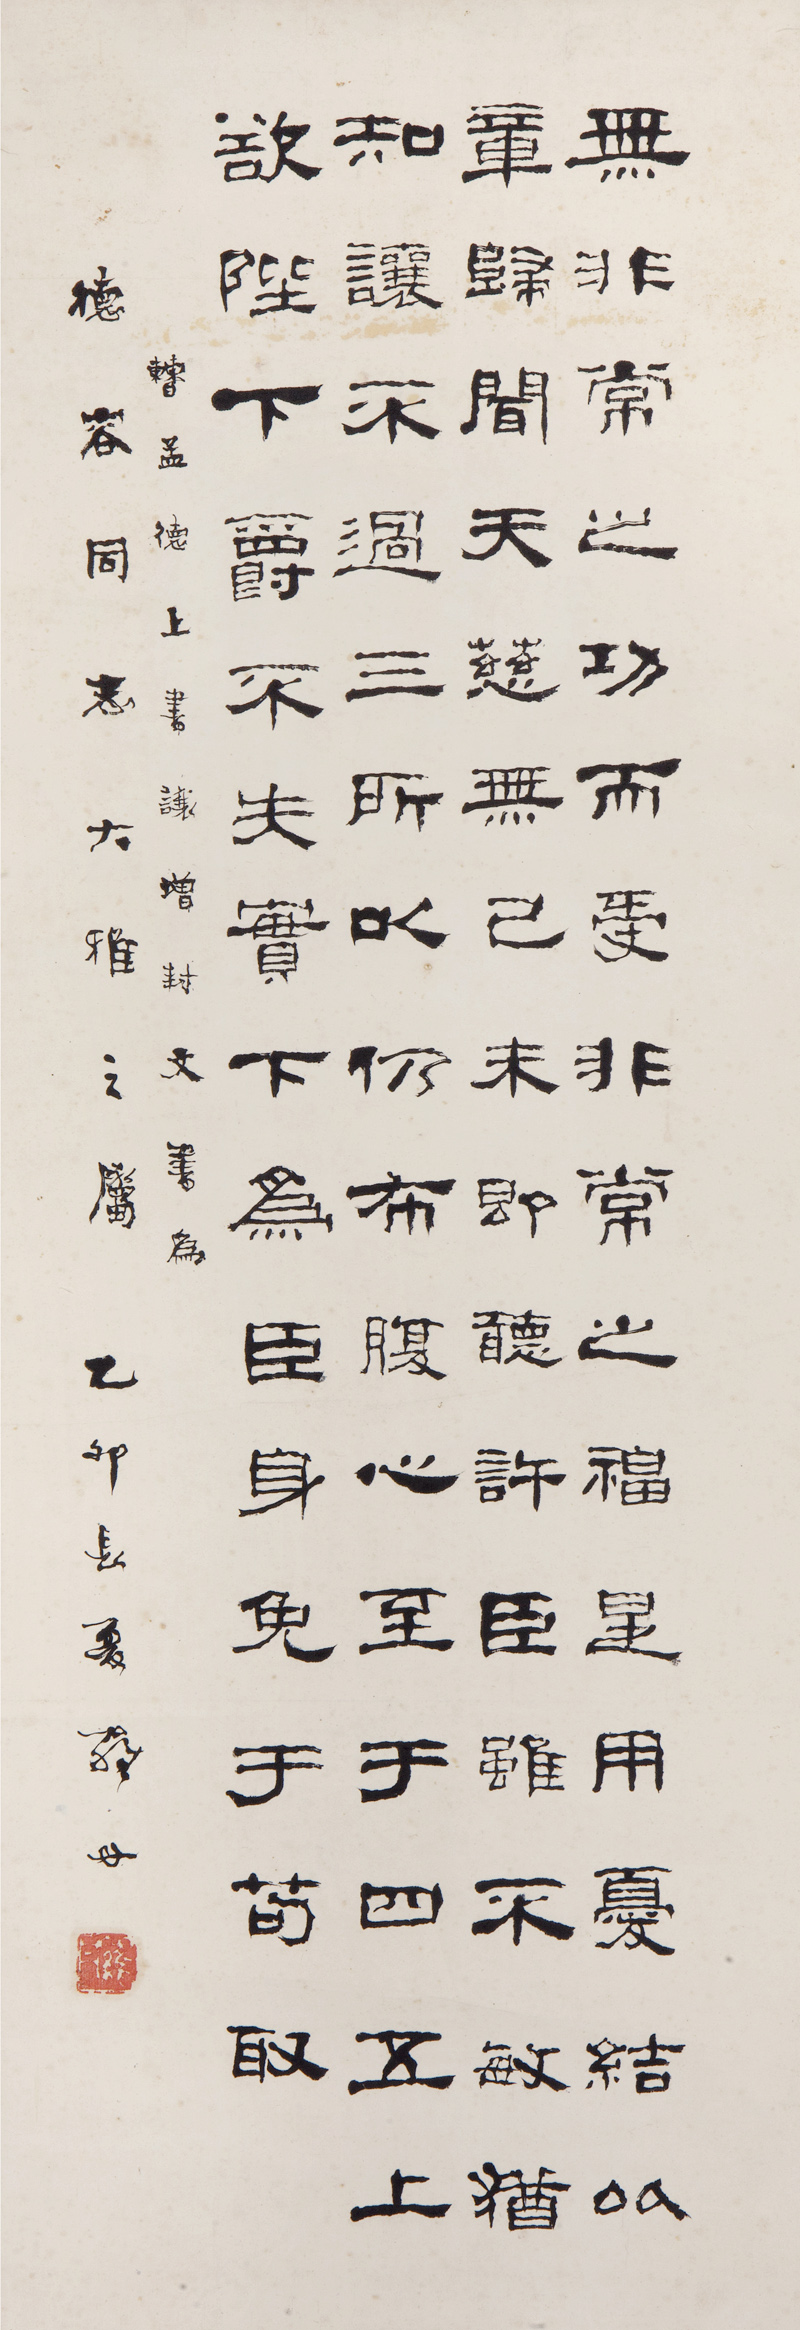 無非常之功而受非常之福是用憂結以
章歸聞天慈無已未即聽許臣雖不敏猶
知讓不過三所以仍布腹心至于四五上
欲陛下爵不失實下為臣身免于苟取
曹孟德上書讓增封文書為
德容同志大雅之屬 乙卯長夏